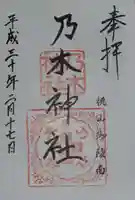 奉拝
桃山御陵南
乃木神社
平成三十年一月十七日